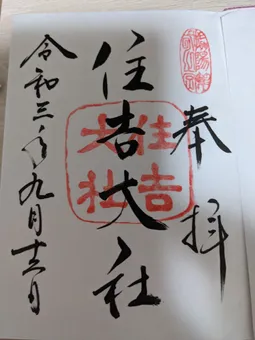 奉拝
住吉大社
住吉
大社
令和三年九月十二日